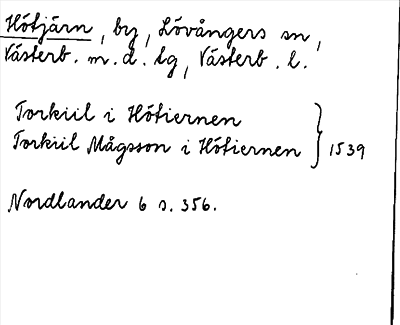 Hötjärn, by, Lövångers sn,
Västerb. m. d. lg, Västerb. l.
Torkiil i Hötiernen
Torkiil Mågsson i Hötiernen } 1539
Nordlander 6 s. 356.